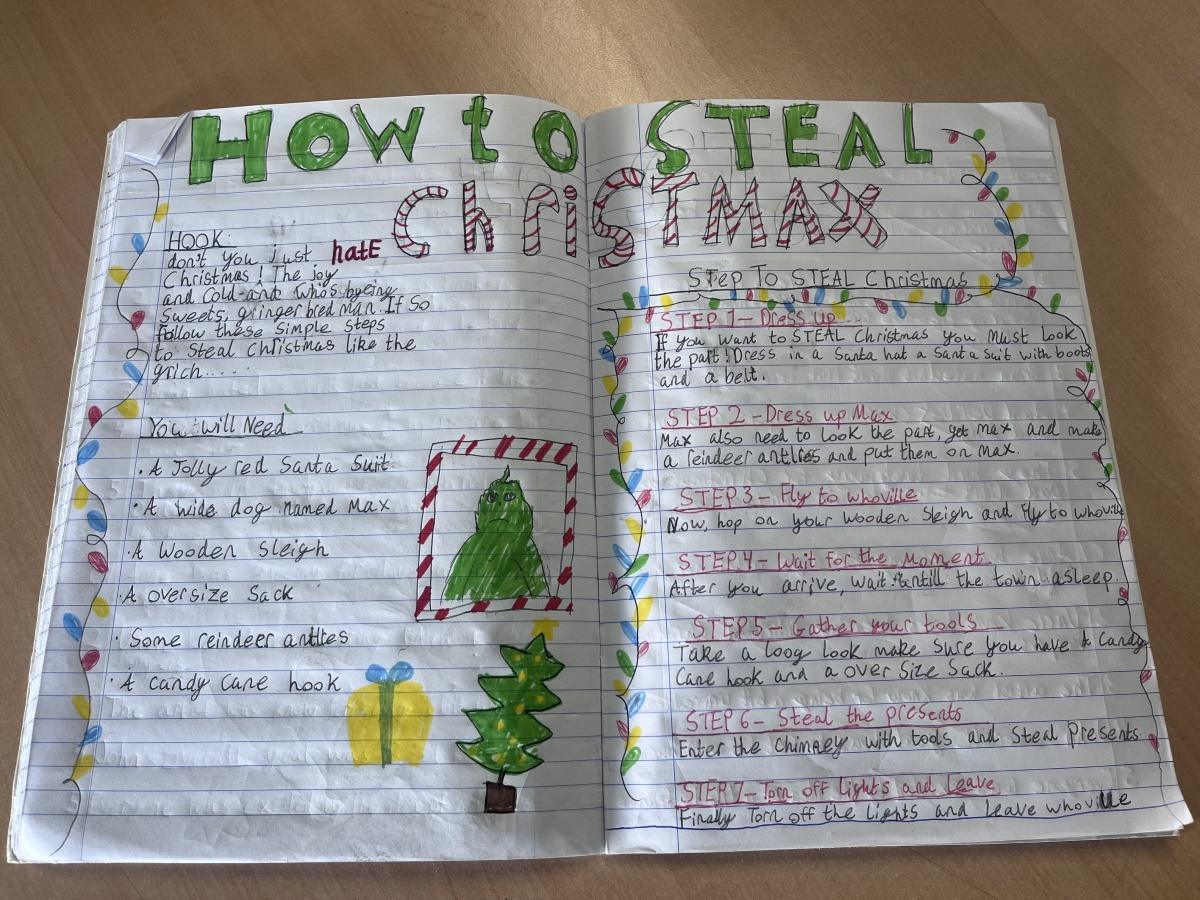 HOW to STEAL
ChriSTMAX
HOOK:
don't you just hatE
Christmas! The Joy
and Cold-ank who's byeing
Sweets, gringer bred man. If So
Follow these Simple steps
to Steal Christmas like the
grich.....
You will Need
• A Jolly red Santa Suit
• A wide dog named Max
• A wooden Sleigh
• A oversize Sack
• Some reindeer antles
• A candy cane hook
Step To STEAL Christmas
STEP 1 - Dress up
If you want to STEAL Christmas you must Look
the part! Dress in a Santa hat a Santa Suit with boots
and a belt.
STEP 2 - Dress up Max
Max also need to Look the part, get max and make
a reindeer antlies and put them on max.
STEP 3 - Fly to whoville
Now, hop on your wooden Sleigh and Fly to whoville
STEP 4 - Wait for the Moment
After you arrive, wait antill the town asleep.
STEP 5 - Gather your tools
Take a loog look make Sure you have a Candy
Cane hook and a over Size Sack.
STEP 6 - Steal the presents
Enter the chimney with tools and Steal Presents.
STEP 7 - Torn off lights and Leave
Finally Torn off the lights and Leave whoville